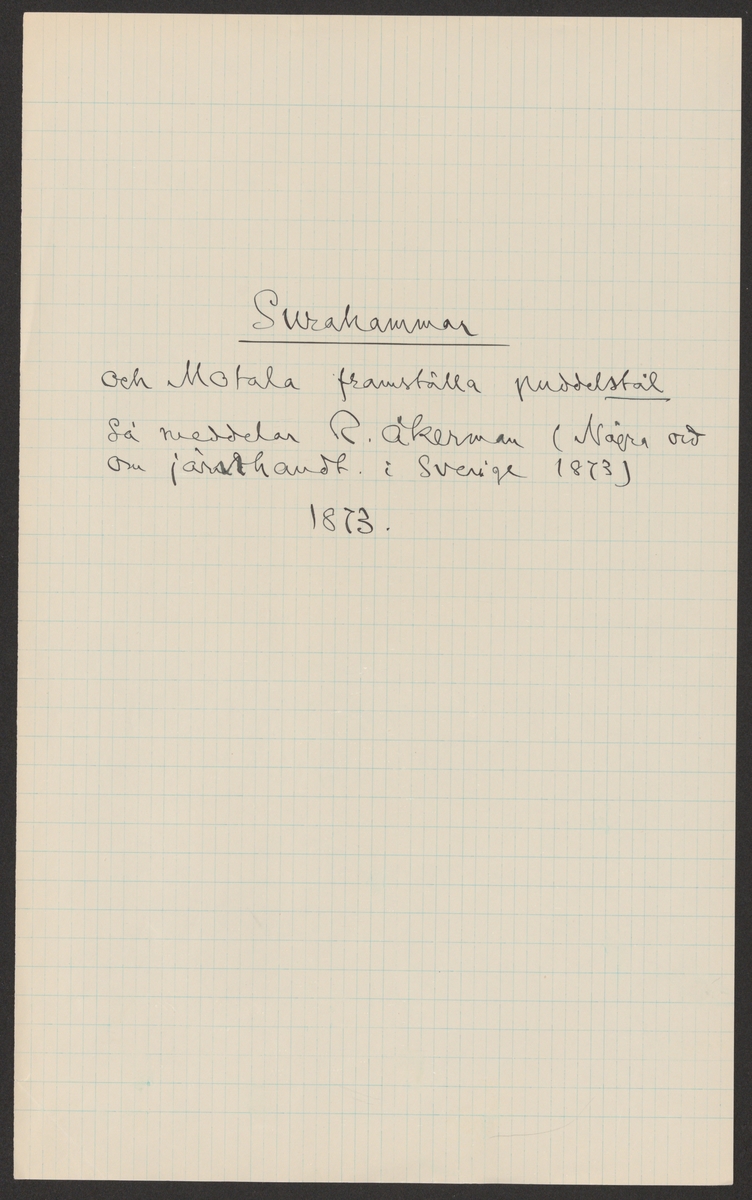 Surahammar
och Motala framställa puddelstål
Så meddelar R. Åkerman (Några ord
om järnhandt. i Sverige 1873)
1873.